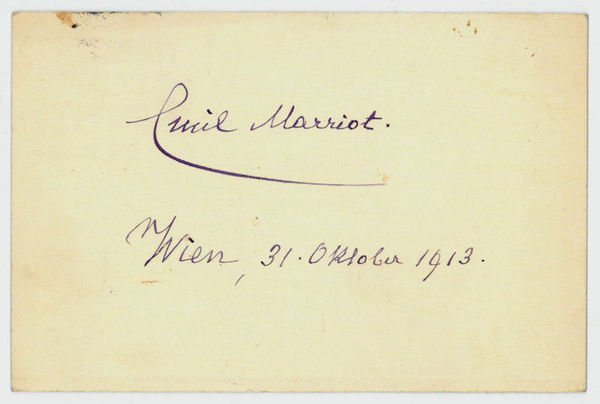 Emil Marriot.
Wien, 31. Oktober 1913.